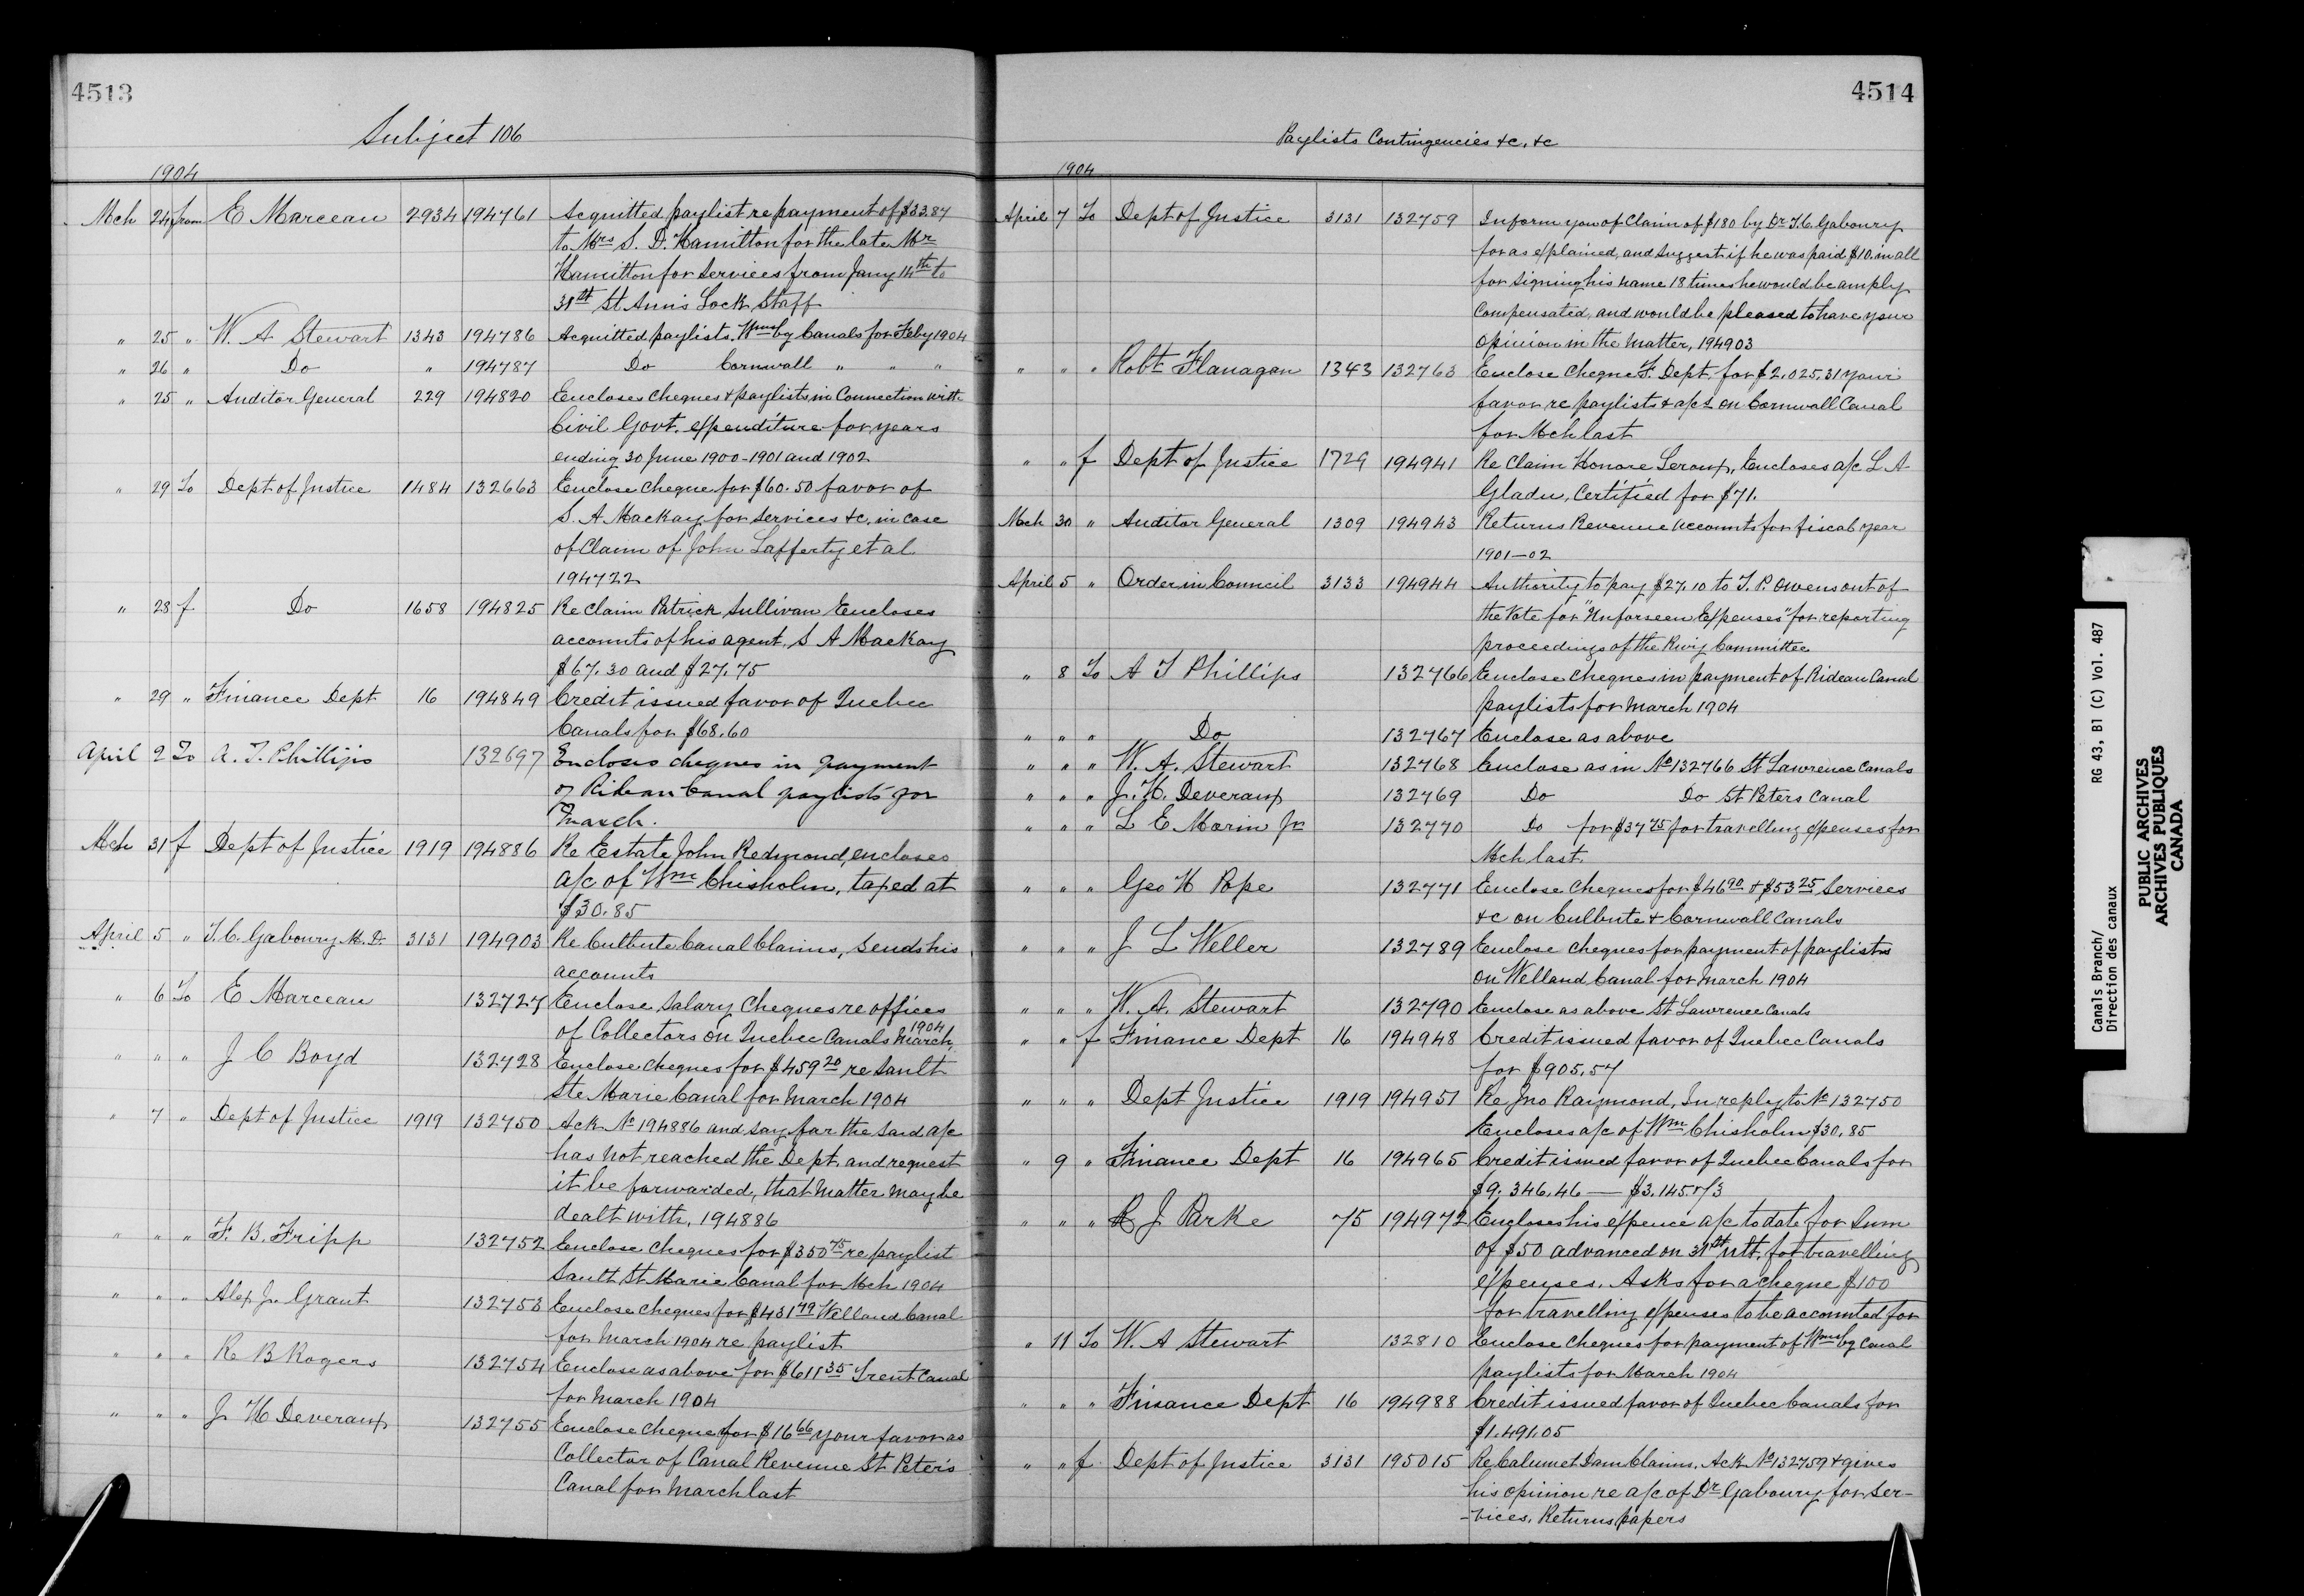 4513
Subject 106
1904
Mch 24 from E Marceau 2934 194761 Acquitted paylist re payment of $33.87
to Mrs S. D. Hamilton for the late Mr
Hamilton for services from Jany 14th to
31st St. Ann's Lock Staff
" 25 " W. A Stewart 1343 194786 Acquitted paylists. Wmsbg Canals for Feby 1904
" 26 " Do " 194787 Do Cornwall " " "
" 25 " Auditor General 229 194820 Encloses cheques & paylists in Connection with
Civil Govt. expenditure for years
ending 30 June 1900-1901 and 1902
" 29 To Dept of Justice 1484 132663 Enclose cheque for $60.50 favor of
S. A Mackay for services &c, in case
of Claim of John Lafferty et al
194722
" 28 f Do 1658 194825 Re Claim Patrick Sullivan Encloses
accounts of his agent, S A Mackay
$67.30 and $27.75
" 29 " Finance Dept 16 194849 Credit issued favor of Quebec
Canals for $68.60
April 2 To A. T. Phillips 132697 Encloses cheques in payment
of Rideau Canal paylists for
March.
Mch 31 f Dept of Justice 1919 194886 Re Estate John Redmond, encloses
a/c of Wm Chisholm, taxed at
$30.85
April 5 " T. C. Gaboury M. D. 3131 194903 Re Culbute Canal Claims, sends his
accounts
" 6 To E Marceau 132727 Enclose Salary Cheques re offices
of Collectors on Quebec Canals March, 1904
" " " J C Boyd 132728 Enclose cheques for $459 20 re Sault
Ste Marie Canal for March 1904
" 7 " Dept of Justice 1919 132750 Ack No 194886 and say far the said a/c
has not reached the Dept. and request
it be forwarded, that matter may be
dealt with, 194886
" " " F. B. Fripp 132752 Enclose cheques for $350 75 re paylist
Sault St Marie Canal for Mch 1904
" " " Alex. J. Grant 132753 Enclose cheques for $431 79 Welland Canal
for March 1904 re paylist
" " " R B Rogers 132754 Enclose as above for $611 35 Trent Canal
for March 1904
" " " J H Deveraux 132755 Enclose cheque for $16 66 your favor as
Collector of Canal Revenue St Peter's
Canal for March last
4514
Paylists Contingencies &c, &c
1904
April 7 To Dept of Justice 3131 132759 Inform you of Claim of $180 by Dr T. C. Gaboury
for as explained, and suggest if he was paid $10. in all
for signing his name 18 times he would be amply
compensated, and would be pleased to have your
opinion in the matter, 194903
" " " Robt Flanagan 1343 132763 Enclose Cheque F. Dept. for $2,025.31 your
favor re paylists & a/cs on Cornwall Canal
for Mch last
" " f Dept of Justice 1729 194941 Re Claim Honore Leroux, Encloses a/c L A
Gladu, Certified for $71.
Mch 30 " Auditor General 1309 194943 Returns Revenue accounts for fiscal year
1901-02
April 5 " Order in Council 3133 194944 Authority to pay $27.10 to T. P. Owens out of
the Vote for "Unforseen Expenses" for reporting
proceedings of the Privy Committee
" 8 To A T Phillips 132766 Enclose cheques in payment of Rideau Canal
paylists for March 1904
" " " Do 132767 Enclose as above
" " " W. A. Stewart 132768 Enclose as in No 132766 St Lawrence Canals
" " " J. H. Deveraux 132769 Do Do St Peters Canal
" " " L E Morin Jr 132770 Do for $37 75 for travelling expenses for
Mch last.
" " " Geo H Pope 132771 Enclose Cheques for $46 90 & $53 25 services
&c on Culbute & Cornwall Canals
" " " J L Weller 132789 Enclose cheques for payment of paylists
on Welland Canal for March 1904
" " " W. A. Stewart 132790 Enclose as above St Lawrence Canals
" " f Finance Dept 16 194948 Credit issued favor of Quebec Canals
for $905.57
" " " Dept Justice 1919 194951 Re Jno Raymond, In reply to No 132750
Encloses a/c of Wm Chisholm $30.85
" 9 " Finance Dept 16 194965 Credit issued favor of Quebec Canals for
$9.346.46 —
" " " R J Parke 75 194972 Encloses his expence a/c to date for sum
of $50 advanced on 31st ult. for travelling
expenses. Asks for a cheque $100
for travelling expenses to be accounted for
" 11 To W. A Stewart 132810 Enclose cheques for payment of Wmsbg Canal
paylists for March 1904
" " " Finance Dept 16 194988 Credit issued favor of Quebec Canals for
$1.491.05
" " f Dept of Justice 3131 195015 Re Calumet Dam Claims. Ack No 132759 & gives
his opinion re a/c of Dr Gaboury for ser-
-vices. Returns papers
Canals Branch/ RG 43, B1 (C) Vol. 487
Direction des canaux
PUBLIC ARCHIVES
ARCHIVES PUBLIQUES
CANADA